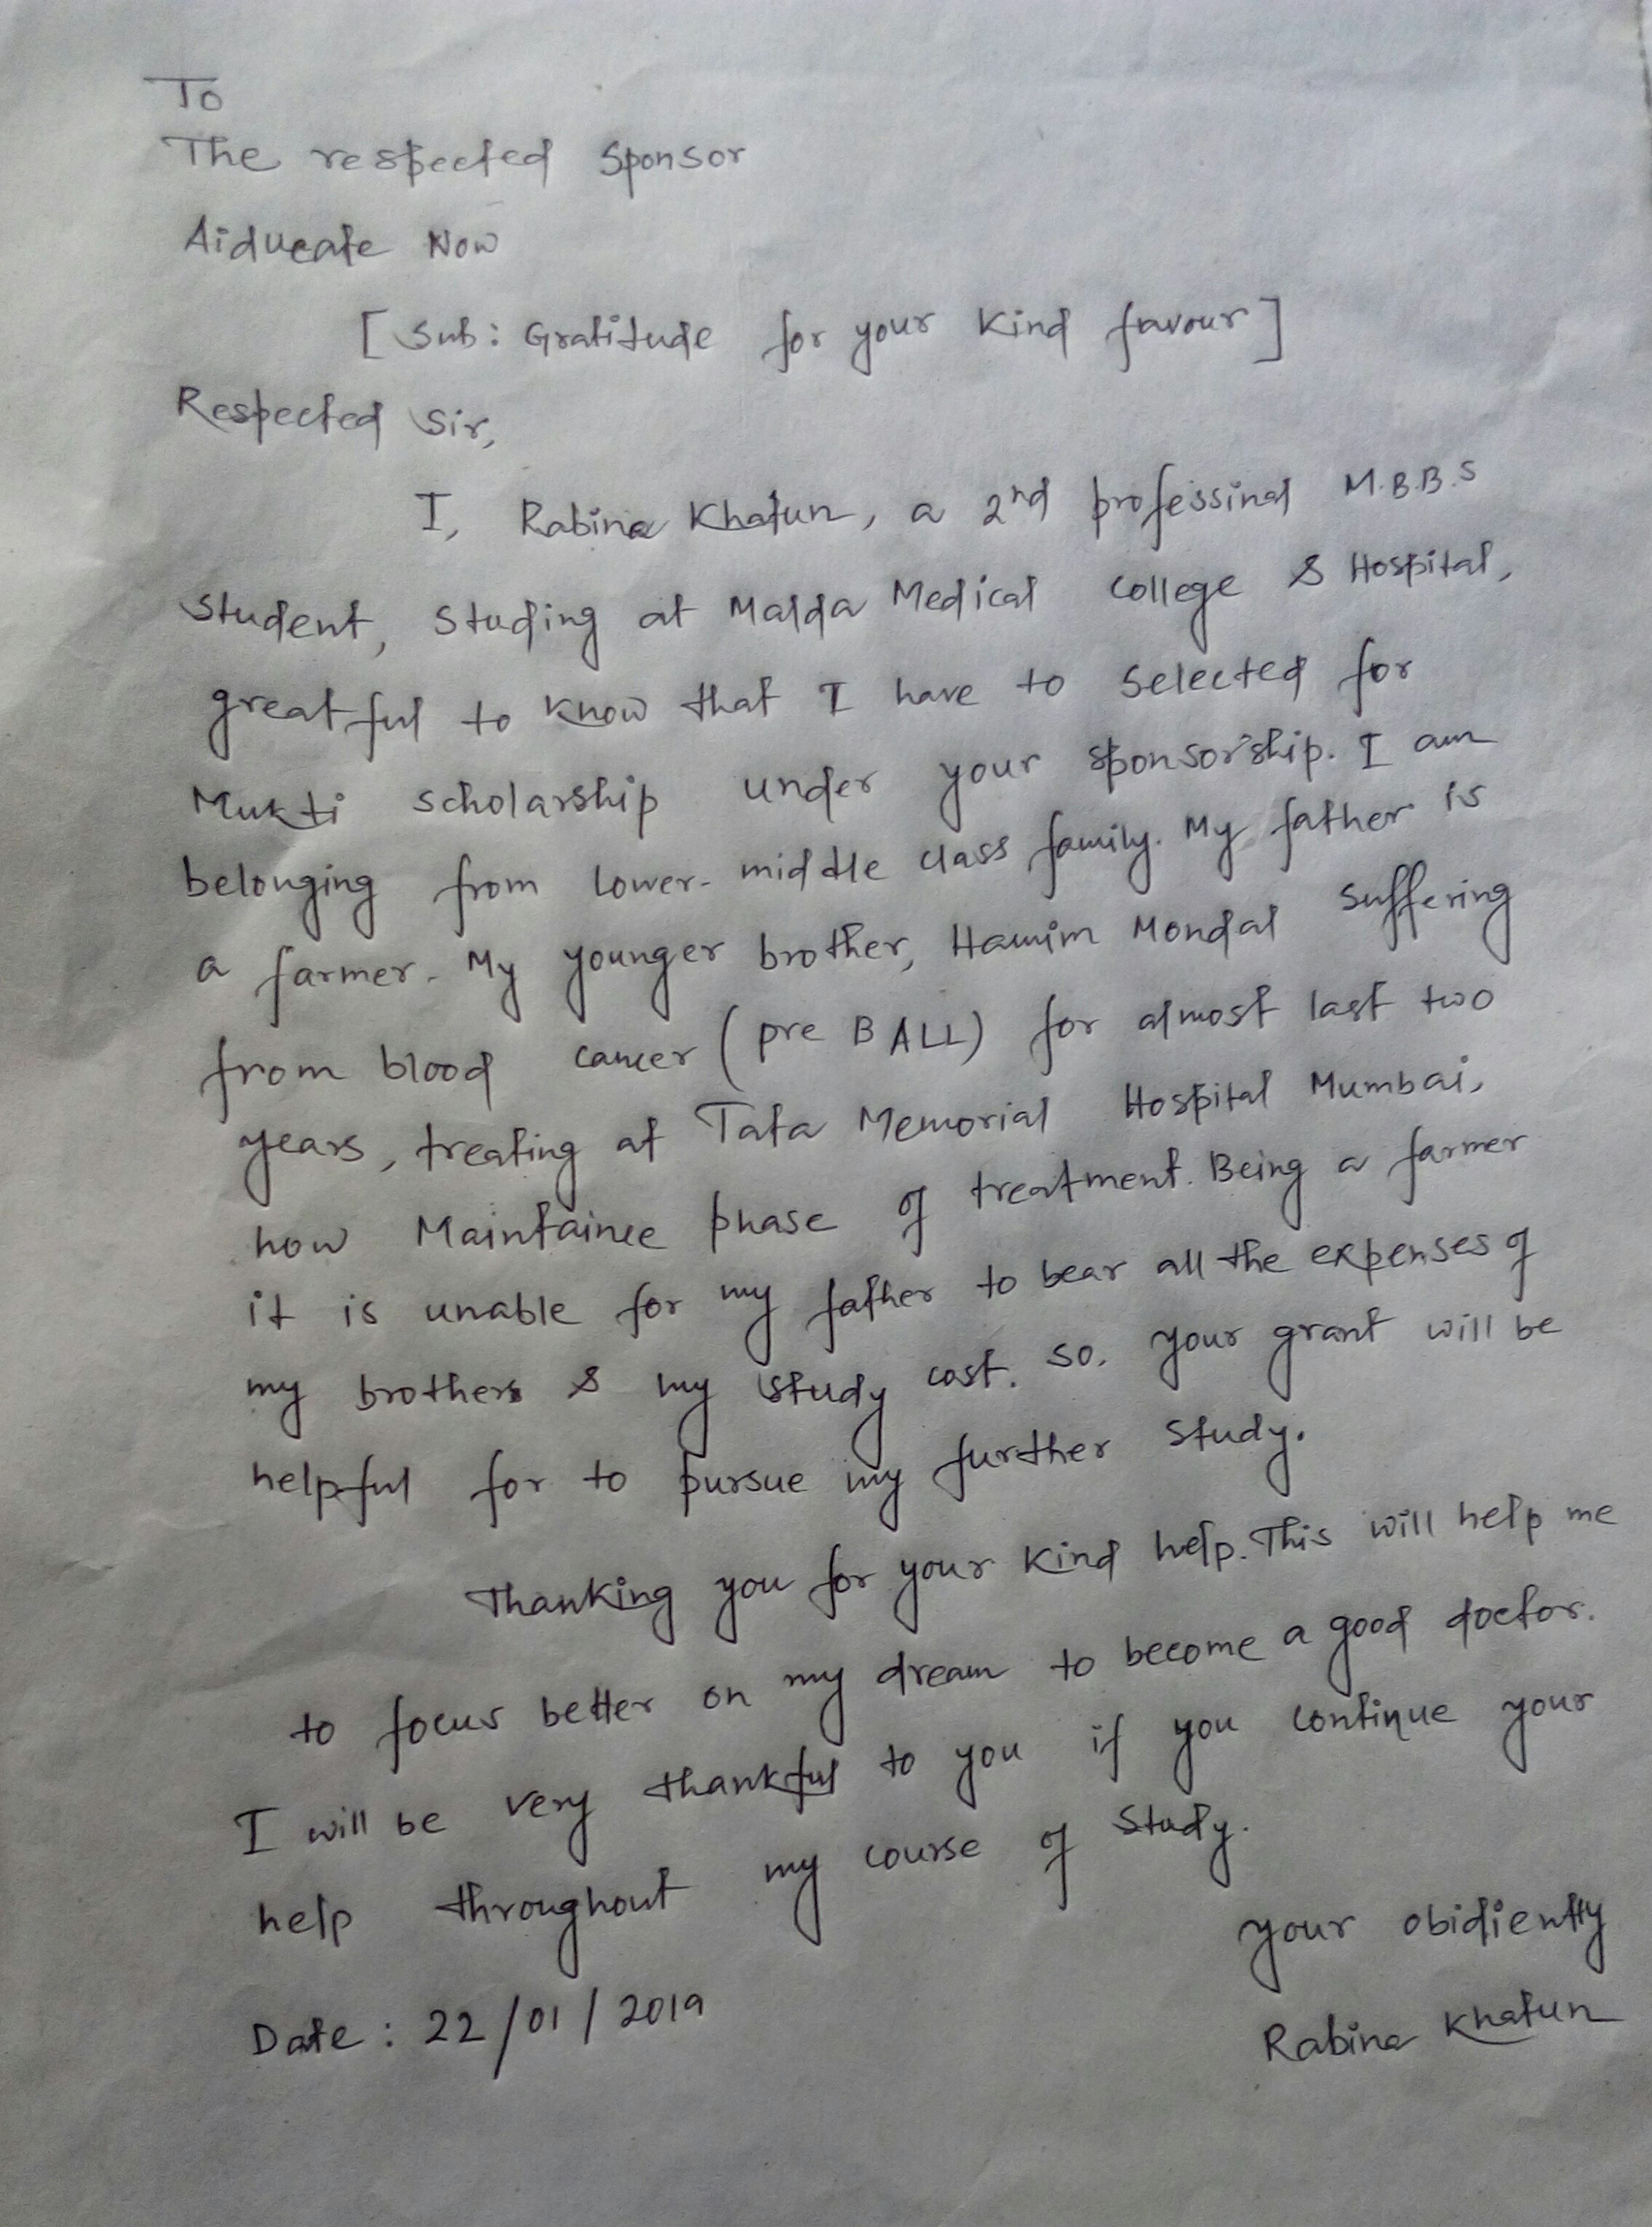 To
The respected Sponsor
Aiducate Now
[Sub: Gratitude for your kind favour]
Respected Sir,
I, Rabina Khatun, a 2nd professinal M.B.B.S
student, Studing at Malda Medical College & Hospital,
greatful to know that I have to selected for
Mukti scholarship under your sponsorship. I am
belonging from lower-middle class family. My father is
a farmer. My younger brother, Hamim Mondal suffering
from blood cancer (pre B ALL) for almost last two
years, treating at Tata Memorial Hospital Mumbai,
now Maintaince phase of treatment. Being a farmer
it is unable for my father to bear all the expenses of
my brothers & my study cost. So, your grant will be
helpful for to pursue my further study.
Thanking you for your kind help. This will help me
to focus better on my dream to become a good doctor.
I will be very thankful to you if you continue your
help throughout my course of study.
your obidiently
Date: 22/01/2019
Rabina Khatun